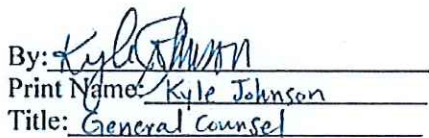 By: Kyle Johnson
Print Name: Kyle Johnson
Title: General Counsel